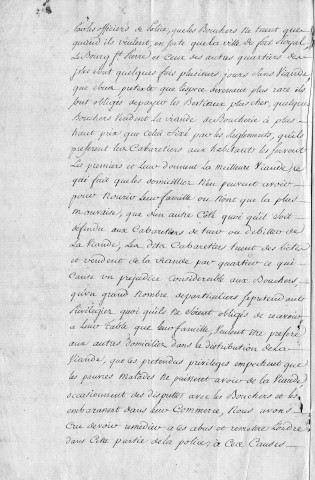 tous les officiers de police, que les Bouchers ne tuent que
quand ils veulent, en sorte que la ville de fort Royal
Le Bourg St. Pierre et ceux des autres quartiers des
sont quelques fois plusieurs jours sans Viande,
que sous pretexte que l'espece devenant plus rare ils
sont obligés de payer les Bestiaux plus cher, quelques
Bouchers vendent la viande de Boucherie a plus
haut prix que celui fixé par les Reglements, qu'ils
preferent les Cabaretiers aux habitants les servent
Les premiers et leur donnent la meilleure Viande, ce
qui fait que les domiciliés n'en peuvent avoir
pour Nourir leur famille ou n'ont que la plus
mauvaise, que d'un autre Côté quoi qu'il soit
defendu aux Cabaretiers de tuer ou debiter de
La Viande, Les dits Cabaretiers tuent des betes
et vendent de la viande par quartier ce qui
Cause un prejudice considerable aux Bouchers,
qu'un grand Nombre de particuliers se pretendants
Privilegiés quoi qu'ils ne soient obligés de recevoir
a leur table que leur famille, veulent etre preferé
aux autres domiciliés dans la distribution de La
Viande, que les pretendus privilegiés empechent que
les pauvres malades ne puissent avoir de la Viande
occasionnent des disputes avec les Bouchers et les
embarassent dans leur Commerce, Nous avons
Cru devoir remedier a ces abus et remettre l'ordre
dans Cette partie de la police, a Ces Causes